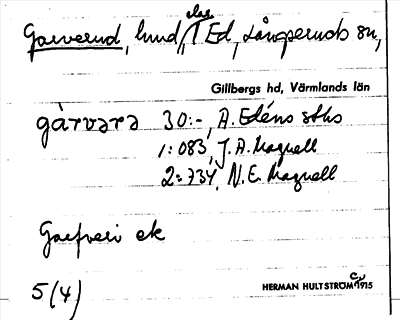 Garverud, hmd, Ed, Långseruds sn,
Gillbergs hd, Värmlands län
gàrvara 30:-, A. Edéns stbs
1:083, J. A. Magnell
2:734, N. E. Magnell
Garfveri ek
5(4)
HERMAN HULTSTRÖM 1915